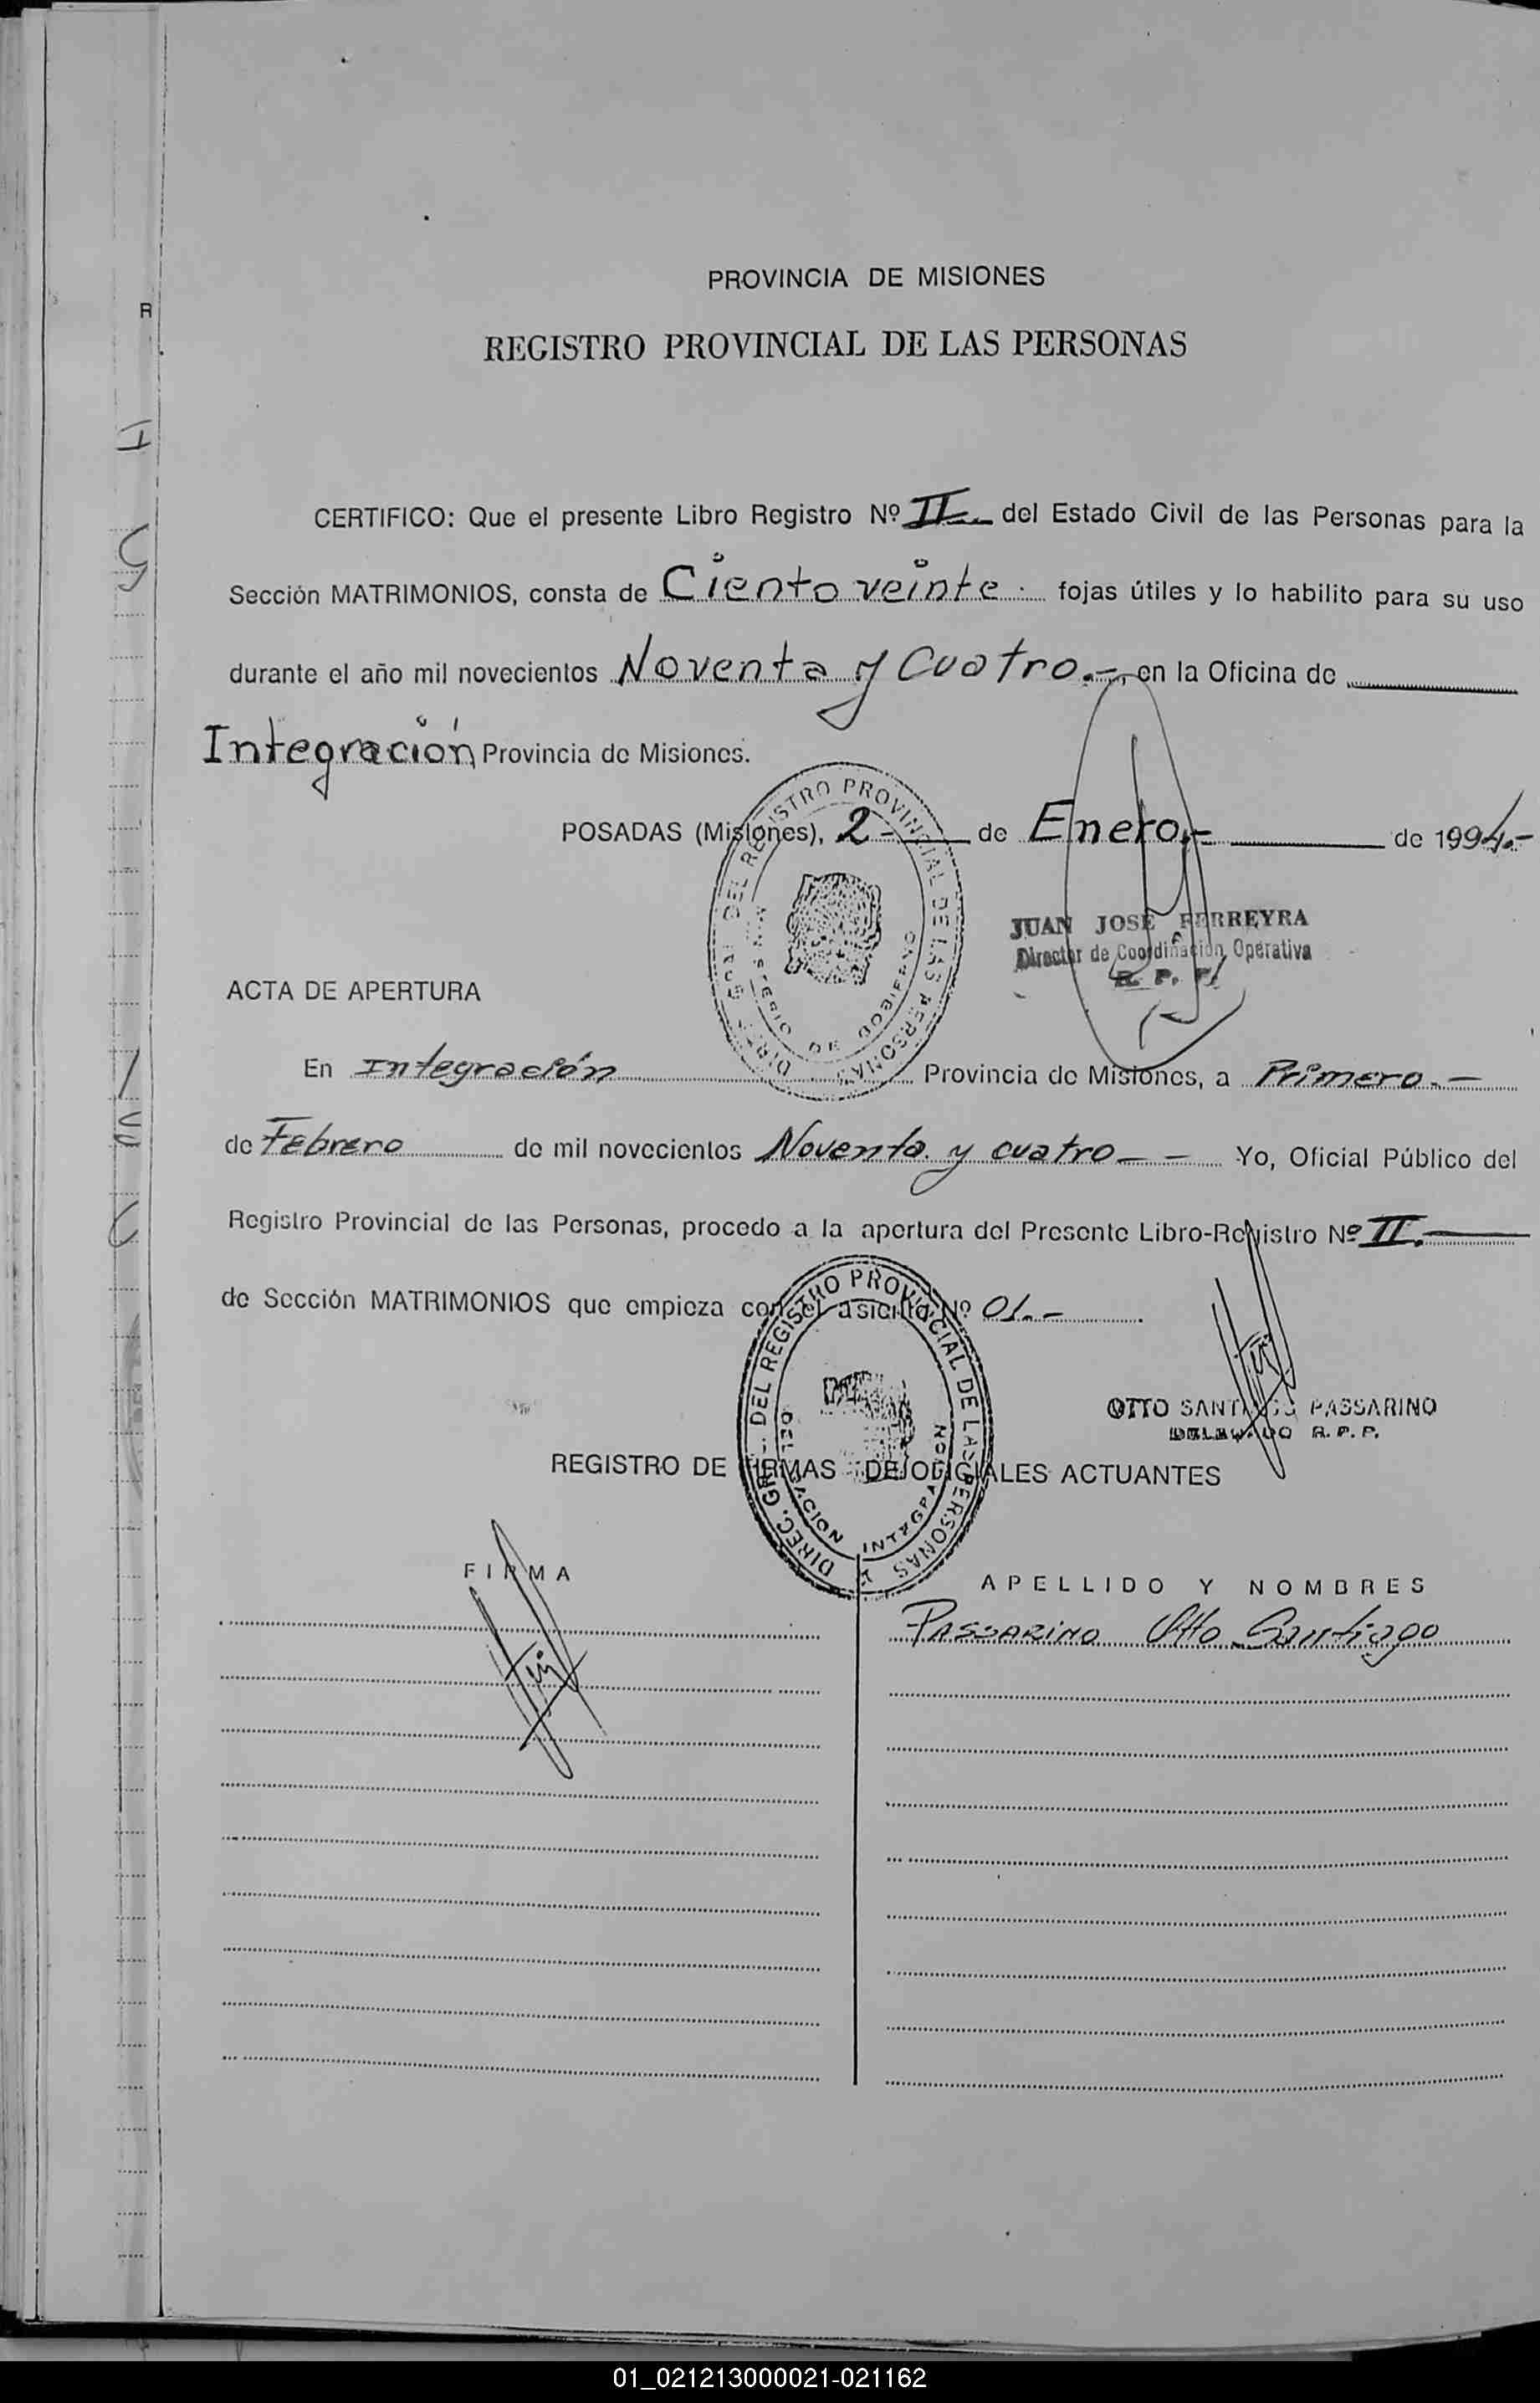 PROVINCIA DE MISIONES
REGISTRO PROVINCIAL DE LAS PERSONAS
R
CERTIFICO: Que el presente Libro Registro Nº II.- del Estado Civil de las Personas para la
Sección MATRIMONIOS, consta de Ciento veinte. fojas útiles y lo habilito para su uso
durante el año mil novecientos Noventa y Cuatro.-, en la Oficina de
Integración Provincia de Misiones.
POSADAS (Misiones), 2- de Enero.- de 1994.-
DIREC. GRAL. DEL REGISTRO PROVINCIAL DE LAS PERSONAS
MINISTERIO DE GOBIERNO
JUAN JOSE FERREYRA
Director de Coordinación Operativa
R. P. P.
ACTA DE APERTURA
En Integración Provincia de Misiones, a Primero.-
de Febrero de mil novecientos Noventa y cuatro - - Yo, Oficial Público del
Registro Provincial de las Personas, procedo a la apertura del Presente Libro-Registro Nº II.-
de Sección MATRIMONIOS que empieza con el asiento Nº 01.-
DIREC. GRAL. DEL REGISTRO PROVINCIAL DE LAS PERSONAS
DELEGACION INTEGRACION
OTTO SANTIAGO PASSARINO
DELEGADO R. P. P.
REGISTRO DE FIRMAS DE OFICIALES ACTUANTES
FIRMA
APELLIDO Y NOMBRES
PASSARINO Otto Santiago
01_021213000021-021162